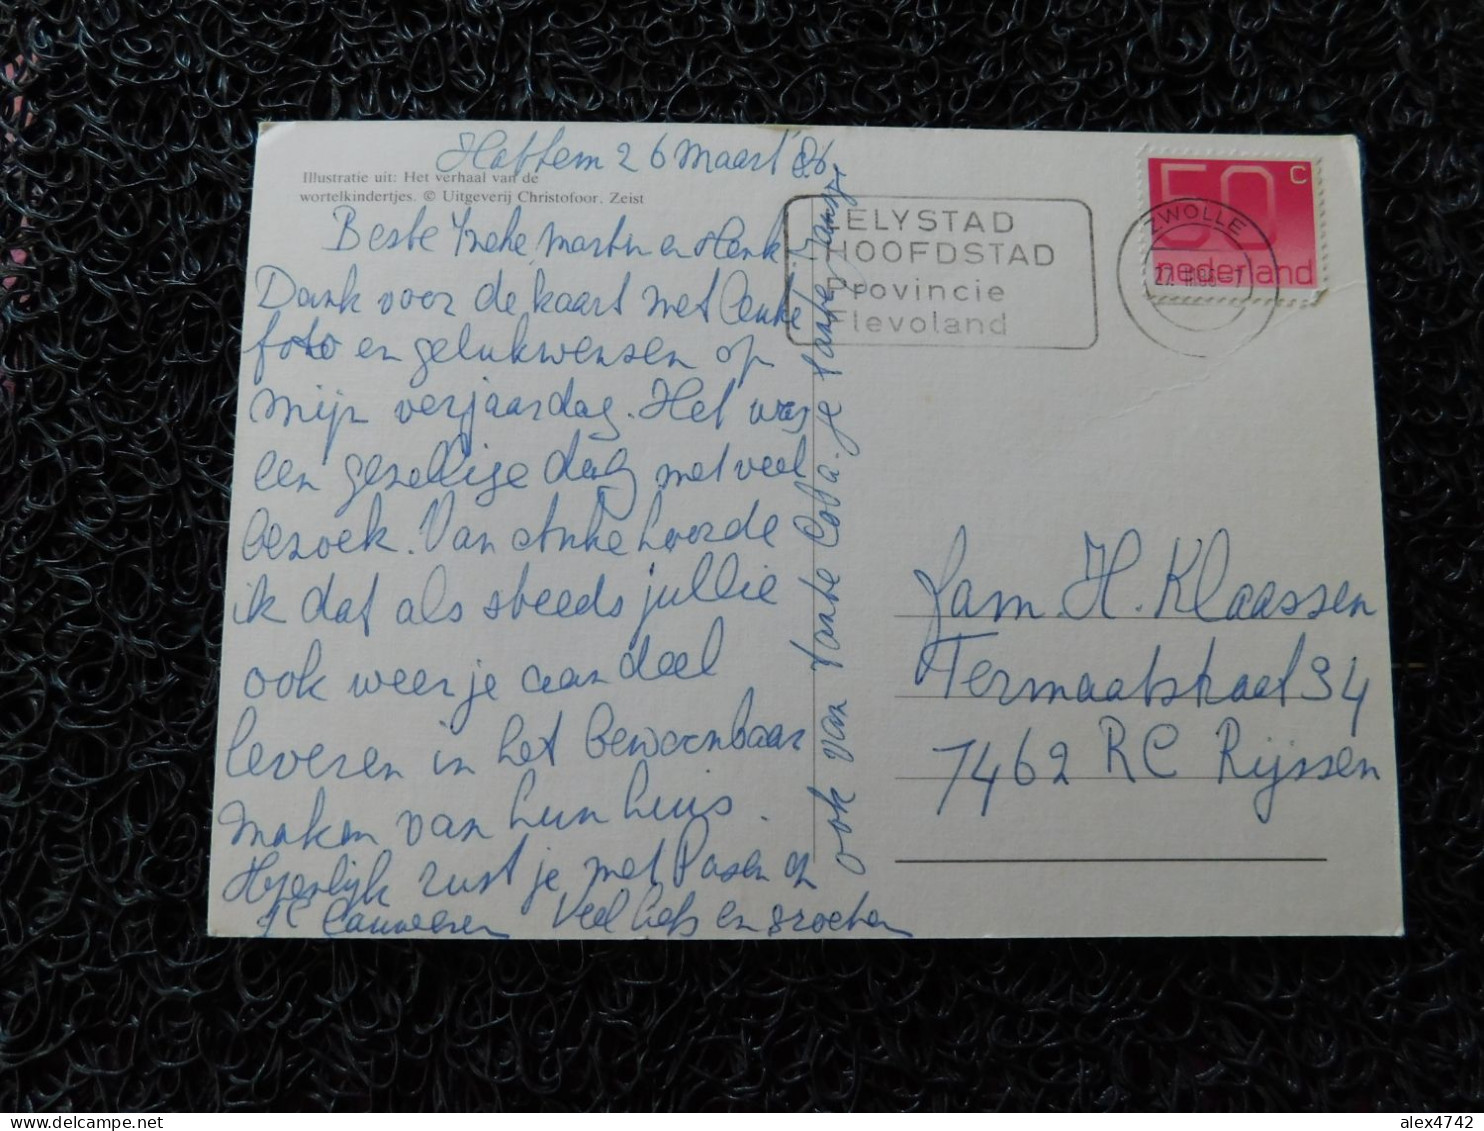 Hattem 26 maart '86
Illustratie uit: Het verhaal van de
wortelkindertjes. © Uitgeverij Christofoor, Zeist
Beste Yneke, Martin en Henk
Dank voor de kaart met leuke
foto en gelukwensen op
mijn verjaardag. Het was
een gezellige dag met veel
bezoek. Van Anke hoorde
ik dat als steeds jullie
ook weer je aandeel
leveren in het bewoonbaar
maken van hun huis.
rust je met Pasen
Veel liefs en groeten
ook van tante Coba. je tante Jansje
LELYSTAD
HOOFDSTAD
Provincie
Flevoland
ZWOLLE
50 c
nederland
fam. H. Klaassen
Termaatstraat 34
7462 RC Rijssen
alex4742